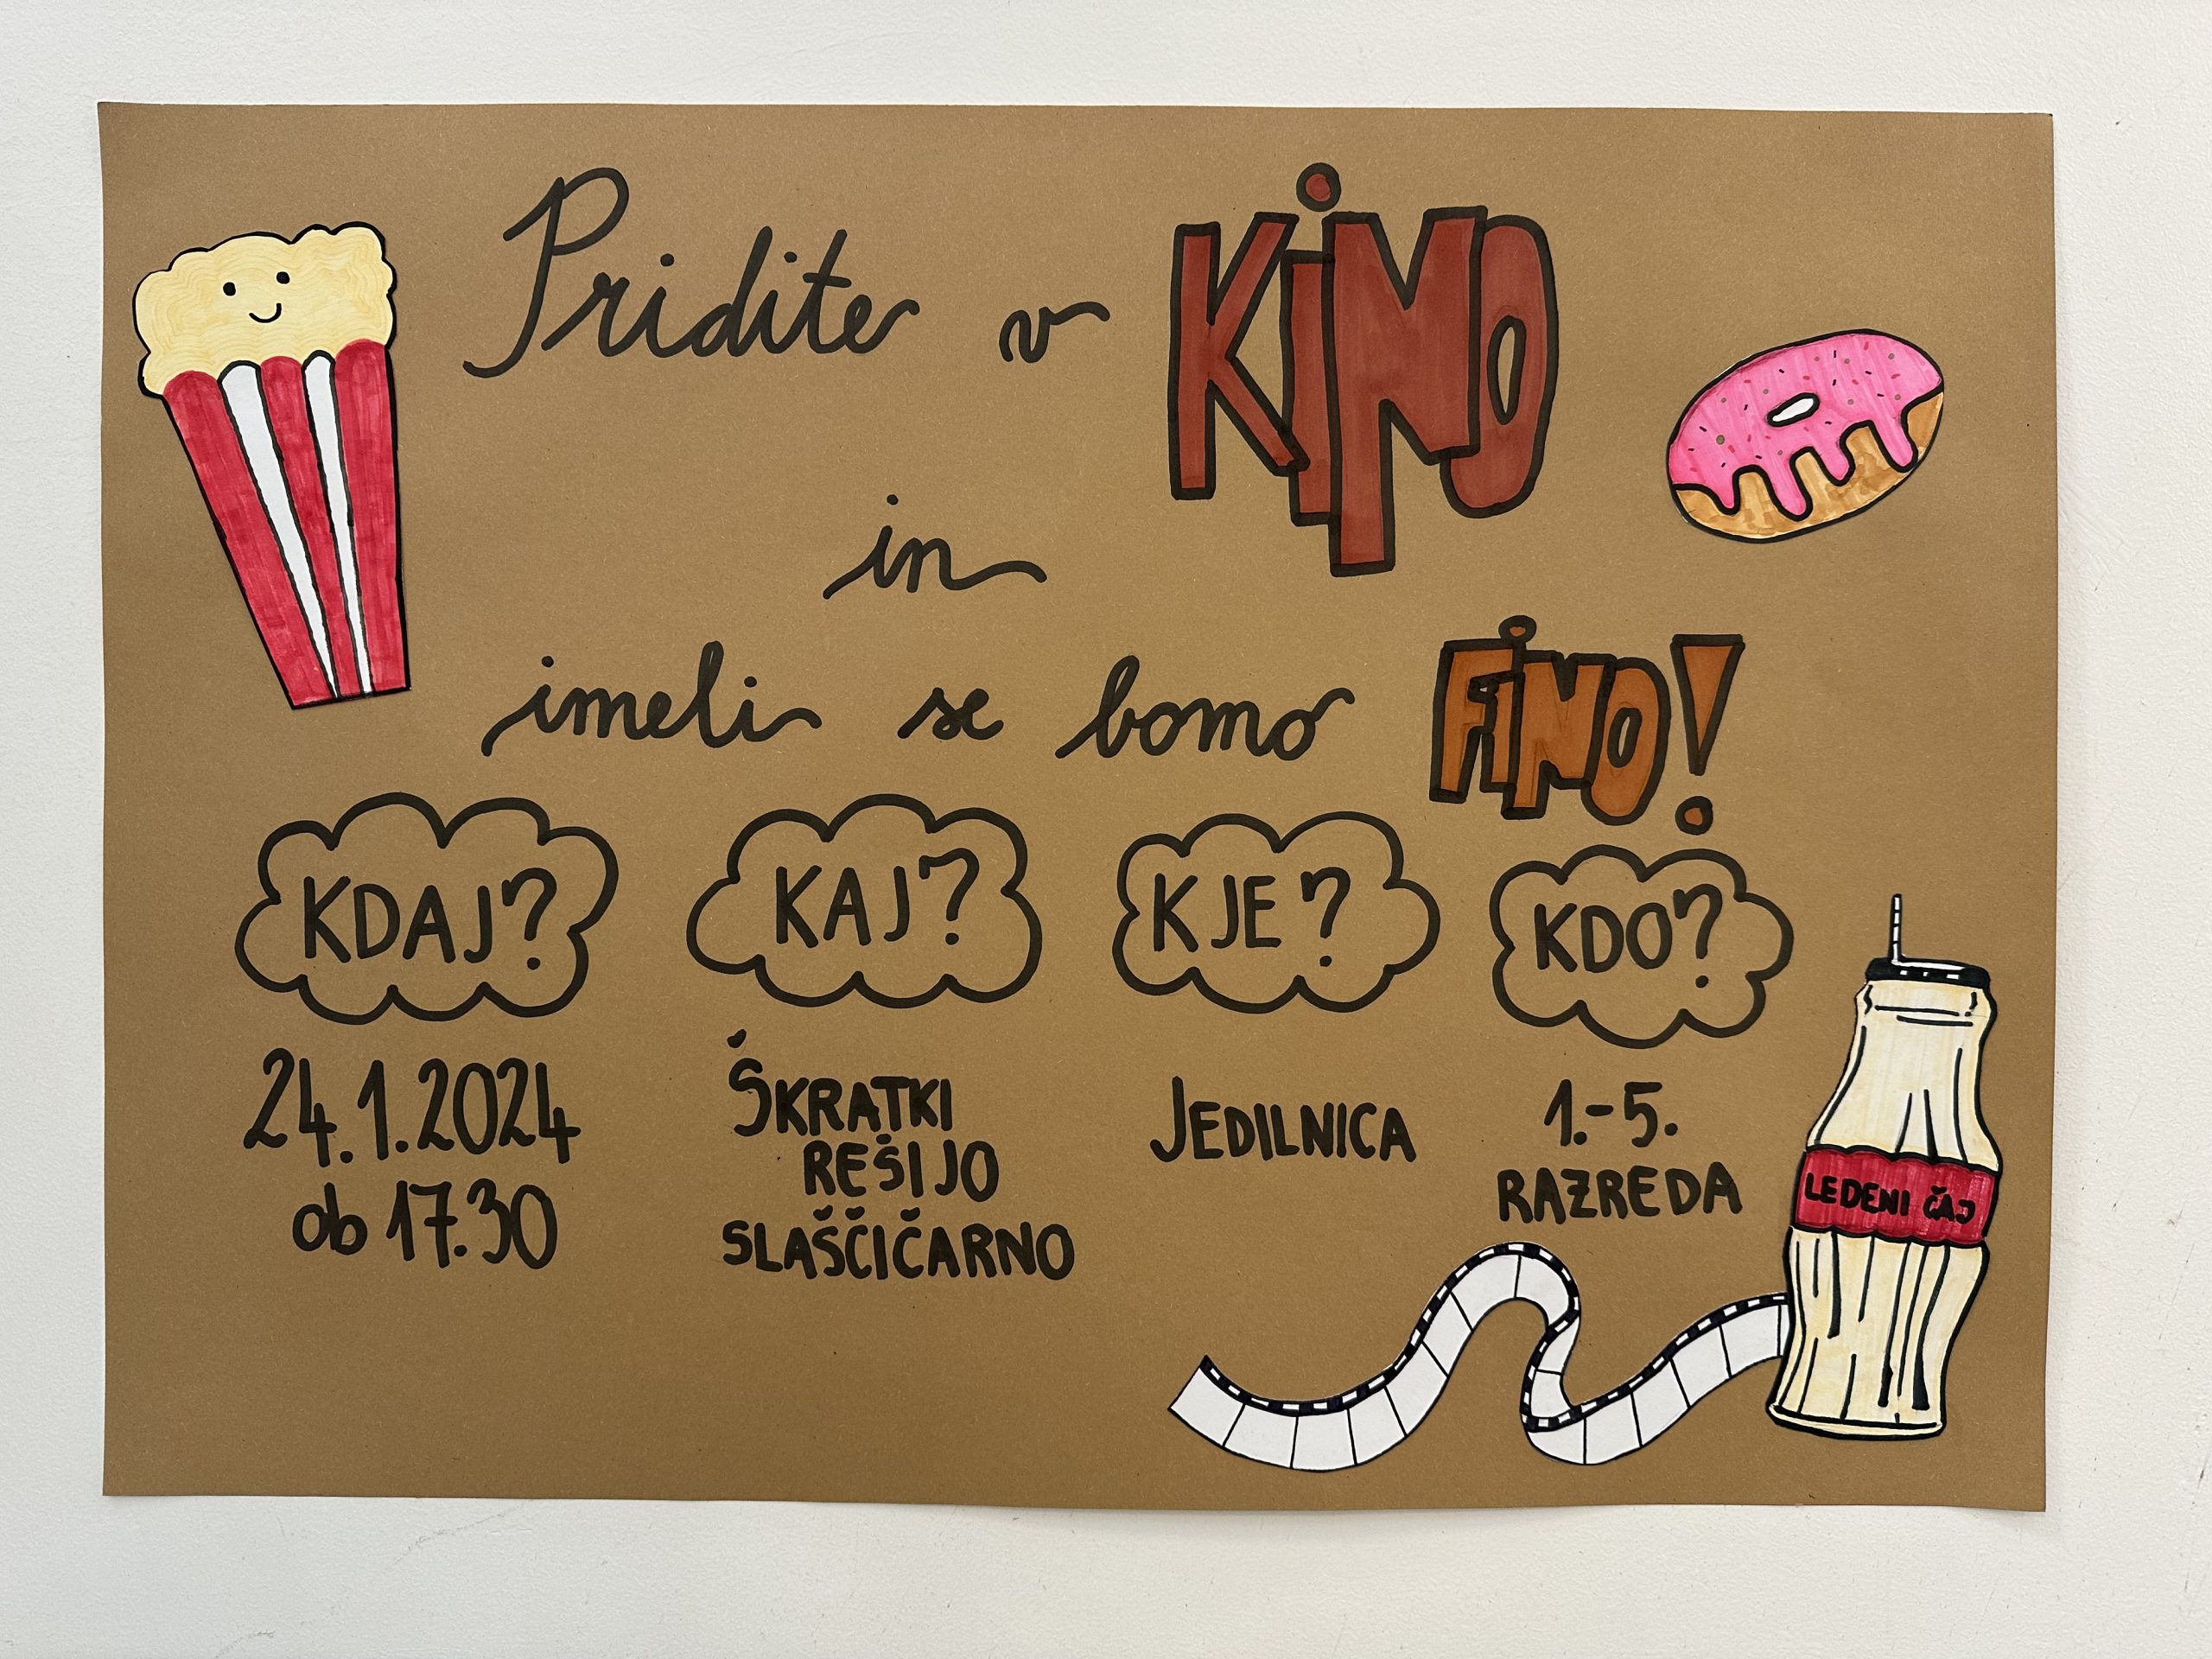 Pridite v KiNO
in
imeli se bomo FiNO!
KDAJ?
24.1.2024
ob 17.30
KAJ?
ŠKRATKI
REŠIJO
SLAŠČIČARNO
KJE?
JEDILNICA
KDO?
1.-5.
RAZREDA
LEDENI ČAJ